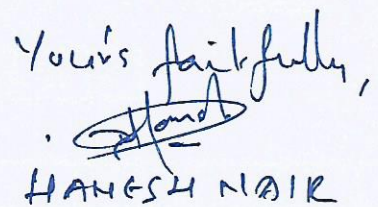 Your's faithfully,
HANESH NAIR